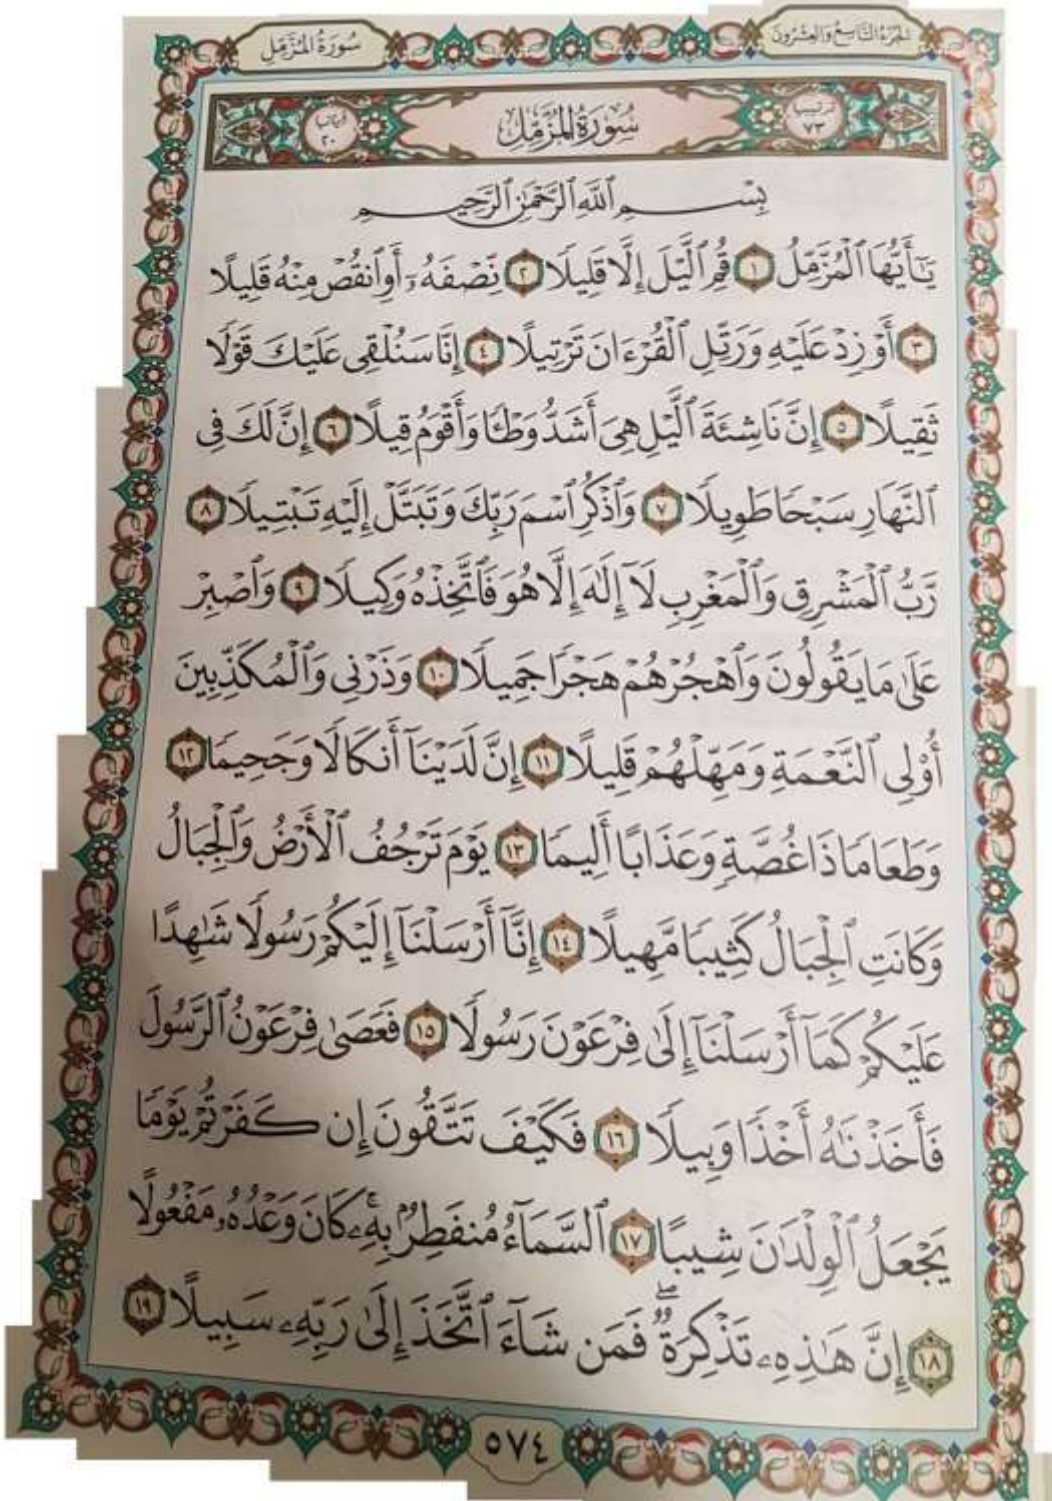 سُورَةُ المُزَّمِّلِ
الجُزءُ التَّاسِعُ وَالعِشْرُونَ
ترتيبها ٧٣
سُورَةُ المُزَّمِّلِ
آياتها ٢٠
بِسْمِ ٱللَّهِ ٱلرَّحْمَٰنِ ٱلرَّحِيمِ
يَٰٓأَيُّهَا ٱلْمُزَّمِّلُ ١ قُمِ ٱلَّيْلَ إِلَّا قَلِيلًا ٢ نِّصْفَهُۥٓ أَوِ ٱنقُصْ مِنْهُ قَلِيلًا
٣ أَوْ زِدْ عَلَيْهِ وَرَتِّلِ ٱلْقُرْءَانَ تَرْتِيلًا ٤ إِنَّا سَنُلْقِى عَلَيْكَ قَوْلًا
ثَقِيلًا ٥ إِنَّ نَاشِئَةَ ٱلَّيْلِ هِىَ أَشَدُّ وَطْـًٔا وَأَقْوَمُ قِيلًا ٦ إِنَّ لَكَ فِى
ٱلنَّهَارِ سَبْحًا طَوِيلًا ٧ وَٱذْكُرِ ٱسْمَ رَبِّكَ وَتَبَتَّلْ إِلَيْهِ تَبْتِيلًا ٨
رَّبُّ ٱلْمَشْرِقِ وَٱلْمَغْرِبِ لَآ إِلَٰهَ إِلَّا هُوَ فَٱتَّخِذْهُ وَكِيلًا ٩ وَٱصْبِرْ
عَلَىٰ مَا يَقُولُونَ وَٱهْجُرْهُمْ هَجْرًا جَمِيلًا ١٠ وَذَرْنِى وَٱلْمُكَذِّبِينَ
أُو۟لِى ٱلنَّعْمَةِ وَمَهِّلْهُمْ قَلِيلًا ١١ إِنَّ لَدَيْنَآ أَنكَالًا وَجَحِيمًا ١٢
وَطَعَامًا ذَا غُصَّةٍ وَعَذَابًا أَلِيمًا ١٣ يَوْمَ تَرْجُفُ ٱلْأَرْضُ وَٱلْجِبَالُ
وَكَانَتِ ٱلْجِبَالُ كَثِيبًا مَّهِيلًا ١٤ إِنَّآ أَرْسَلْنَآ إِلَيْكُمْ رَسُولًا شَٰهِدًا
عَلَيْكُمْ كَمَآ أَرْسَلْنَآ إِلَىٰ فِرْعَوْنَ رَسُولًا ١٥ فَعَصَىٰ فِرْعَوْنُ ٱلرَّسُولَ
فَأَخَذْنَٰهُ أَخْذًا وَبِيلًا ١٦ فَكَيْفَ تَتَّقُونَ إِن كَفَرْتُمْ يَوْمًا
يَجْعَلُ ٱلْوِلْدَٰنَ شِيبًا ١٧ ٱلسَّمَآءُ مُنفَطِرٌۢ بِهِۦ ۚ كَانَ وَعْدُهُۥ مَفْعُولًا
١٨ إِنَّ هَٰذِهِۦ تَذْكِرَةٌ ۖ فَمَن شَآءَ ٱتَّخَذَ إِلَىٰ رَبِّهِۦ سَبِيلًا ١٩
٥٧٤